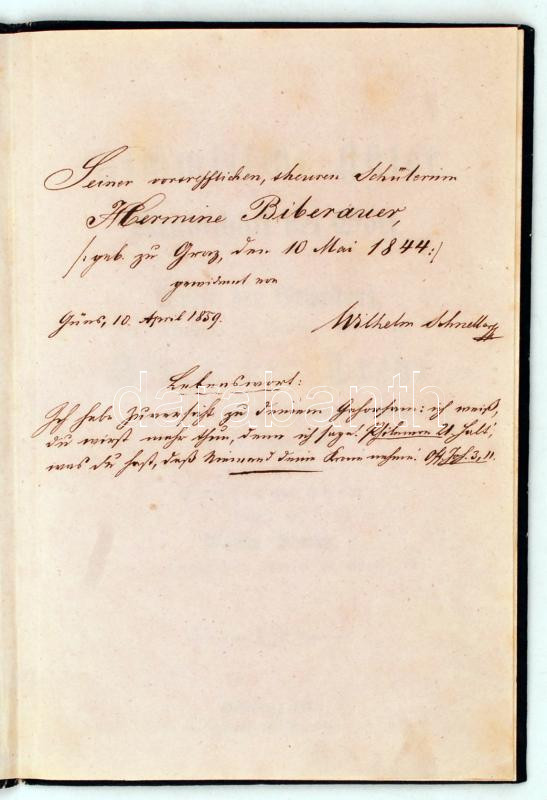 Seiner vortrefflichen, theuren Schülerinn
Hermine Biberauer,
/: geb. zu Graz, den 10 Mai 1844 :/
gewidmet von
Güns, 10. April 1859. Wilhelm Schneller
Lebenswort:
darabanth
Ich habe Zuversicht zu deinem Gehorsam: ich weiß,
du wirst mehr thun, denn ich sage! Philemon 21. Halt,
was du hast, daß Niemand deine Krone nehme! Off. Joh. 3, 11.